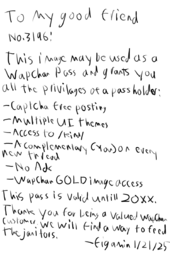 To My good friend
No.3196!
This image may be used as a
Wapchan Pass and grants you
all the privileges of a pass holder:
-Captcha free posting
-Multiple UI themes
-Access to /
-A complementary (You) on every
new thread
-No Ads
-Wapchan GOLD image access
This pass is valid until 20XX.
Thank you for being a valued Wapchan
Customer, we will find a way to feed
the jailors.
1/21/25